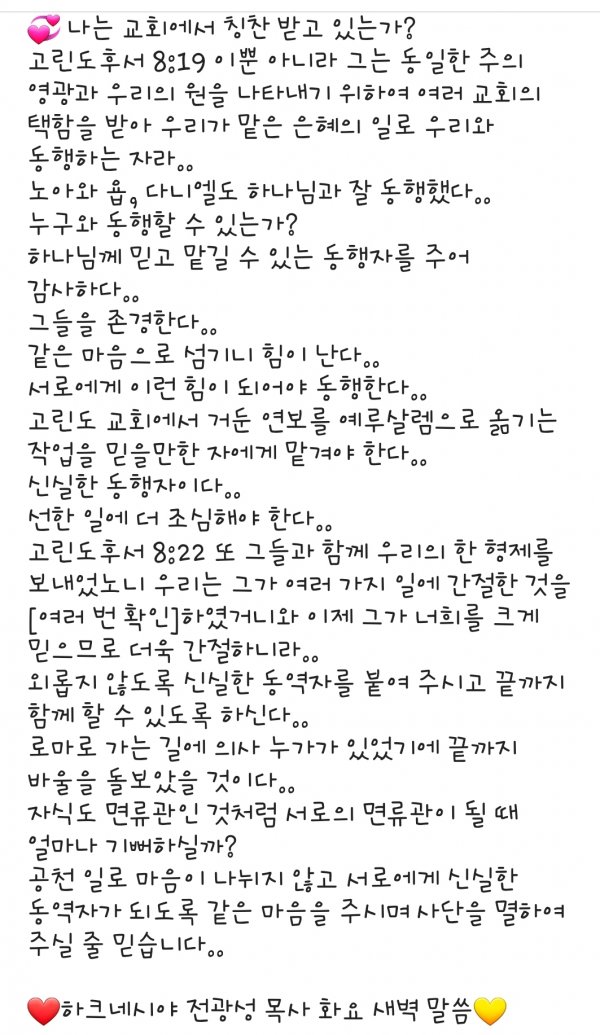 💞 나는 교회에서 칭찬 받고 있는가?
고린도후서 8:19 이뿐 아니라 그는 동일한 주의
영광과 우리의 원을 나타내기 위하여 여러 교회의
택함을 받아 우리가 맡은 은혜의 일로 우리와
동행하는 자라..
노아와 욥, 다니엘도 하나님과 잘 동행했다..
누구와 동행할 수 있는가?
하나님께 믿고 맡길 수 있는 동행자를 주어
감사하다..
그들을 존경한다..
같은 마음으로 섬기니 힘이 난다..
서로에게 이런 힘이 되어야 동행한다..
고린도 교회에서 거둔 연보를 예루살렘으로 옮기는
작업을 믿을만한 자에게 맡겨야 한다..
신실한 동행자이다..
선한 일에 더 조심해야 한다..
고린도후서 8:22 또 그들과 함께 우리의 한 형제를
보내었노니 우리는 그가 여러 가지 일에 간절한 것을
[여러 번 확인]하였거니와 이제 그가 너희를 크게
믿으므로 더욱 간절하니라..
외롭지 않도록 신실한 동역자를 붙여 주시고 끝까지
함께 할 수 있도록 하신다..
로마로 가는 길에 의사 누가가 있었기에 끝까지
바울을 돌보았을 것이다..
자식도 면류관인 것처럼 서로의 면류관이 될 때
얼마나 기뻐하실까?
공천 일로 마음이 나뉘지 않고 서로에게 신실한
동역자가 되도록 같은 마음을 주시며 사단을 멸하여
주실 줄 믿습니다..
❤️하크네시야 전광성 목사 화요 새벽 말씀💛